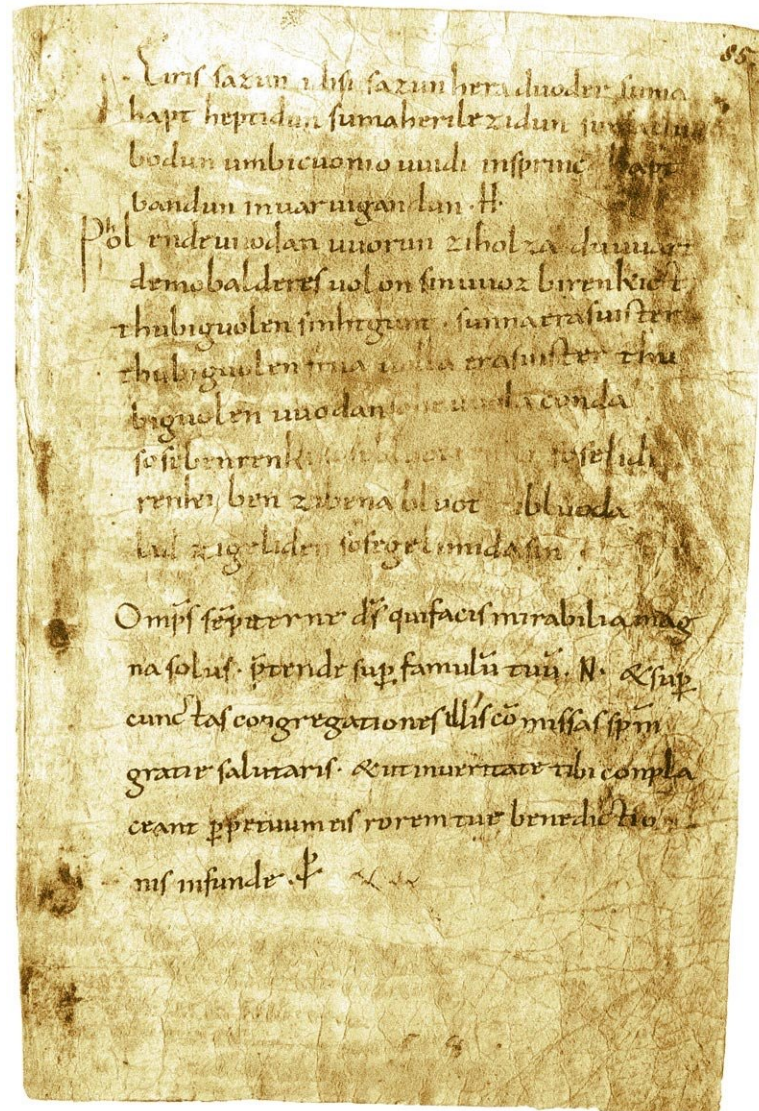 85
Eiris sazun idisi sazun hera duoder suma
hapt heptidun suma herilezidun suma
bodun umbicuonio uuidi insprinc hapt
bandun inuar uigandun · H ·
Phol ende uuodan uuorun ziholza du uuart
demobalderes uolon sinuuoz birenkict
thubiguolen sinhtgunt · sunna erasuister
thubiguolen friia uolla erasuister thu
biguolen uuodan sohe uuola conda
sosebenrenki sose bluotrenki soselidi
renki ben zibena bluot zibluoda
lid zigeliden sosegelimidasin ·
Omp̄s sēpiterne d̄s quifacis mirabilia mag
na solus · p̄tende sup̲ famulū tuū · N · & sup̲
cunctas congregationes illis cō missas sp̄m
gratie salutaris · & ut inueritate tibi conpla
ceant p̲petuum eis rorem tue benedictio
nis infunde · p̲